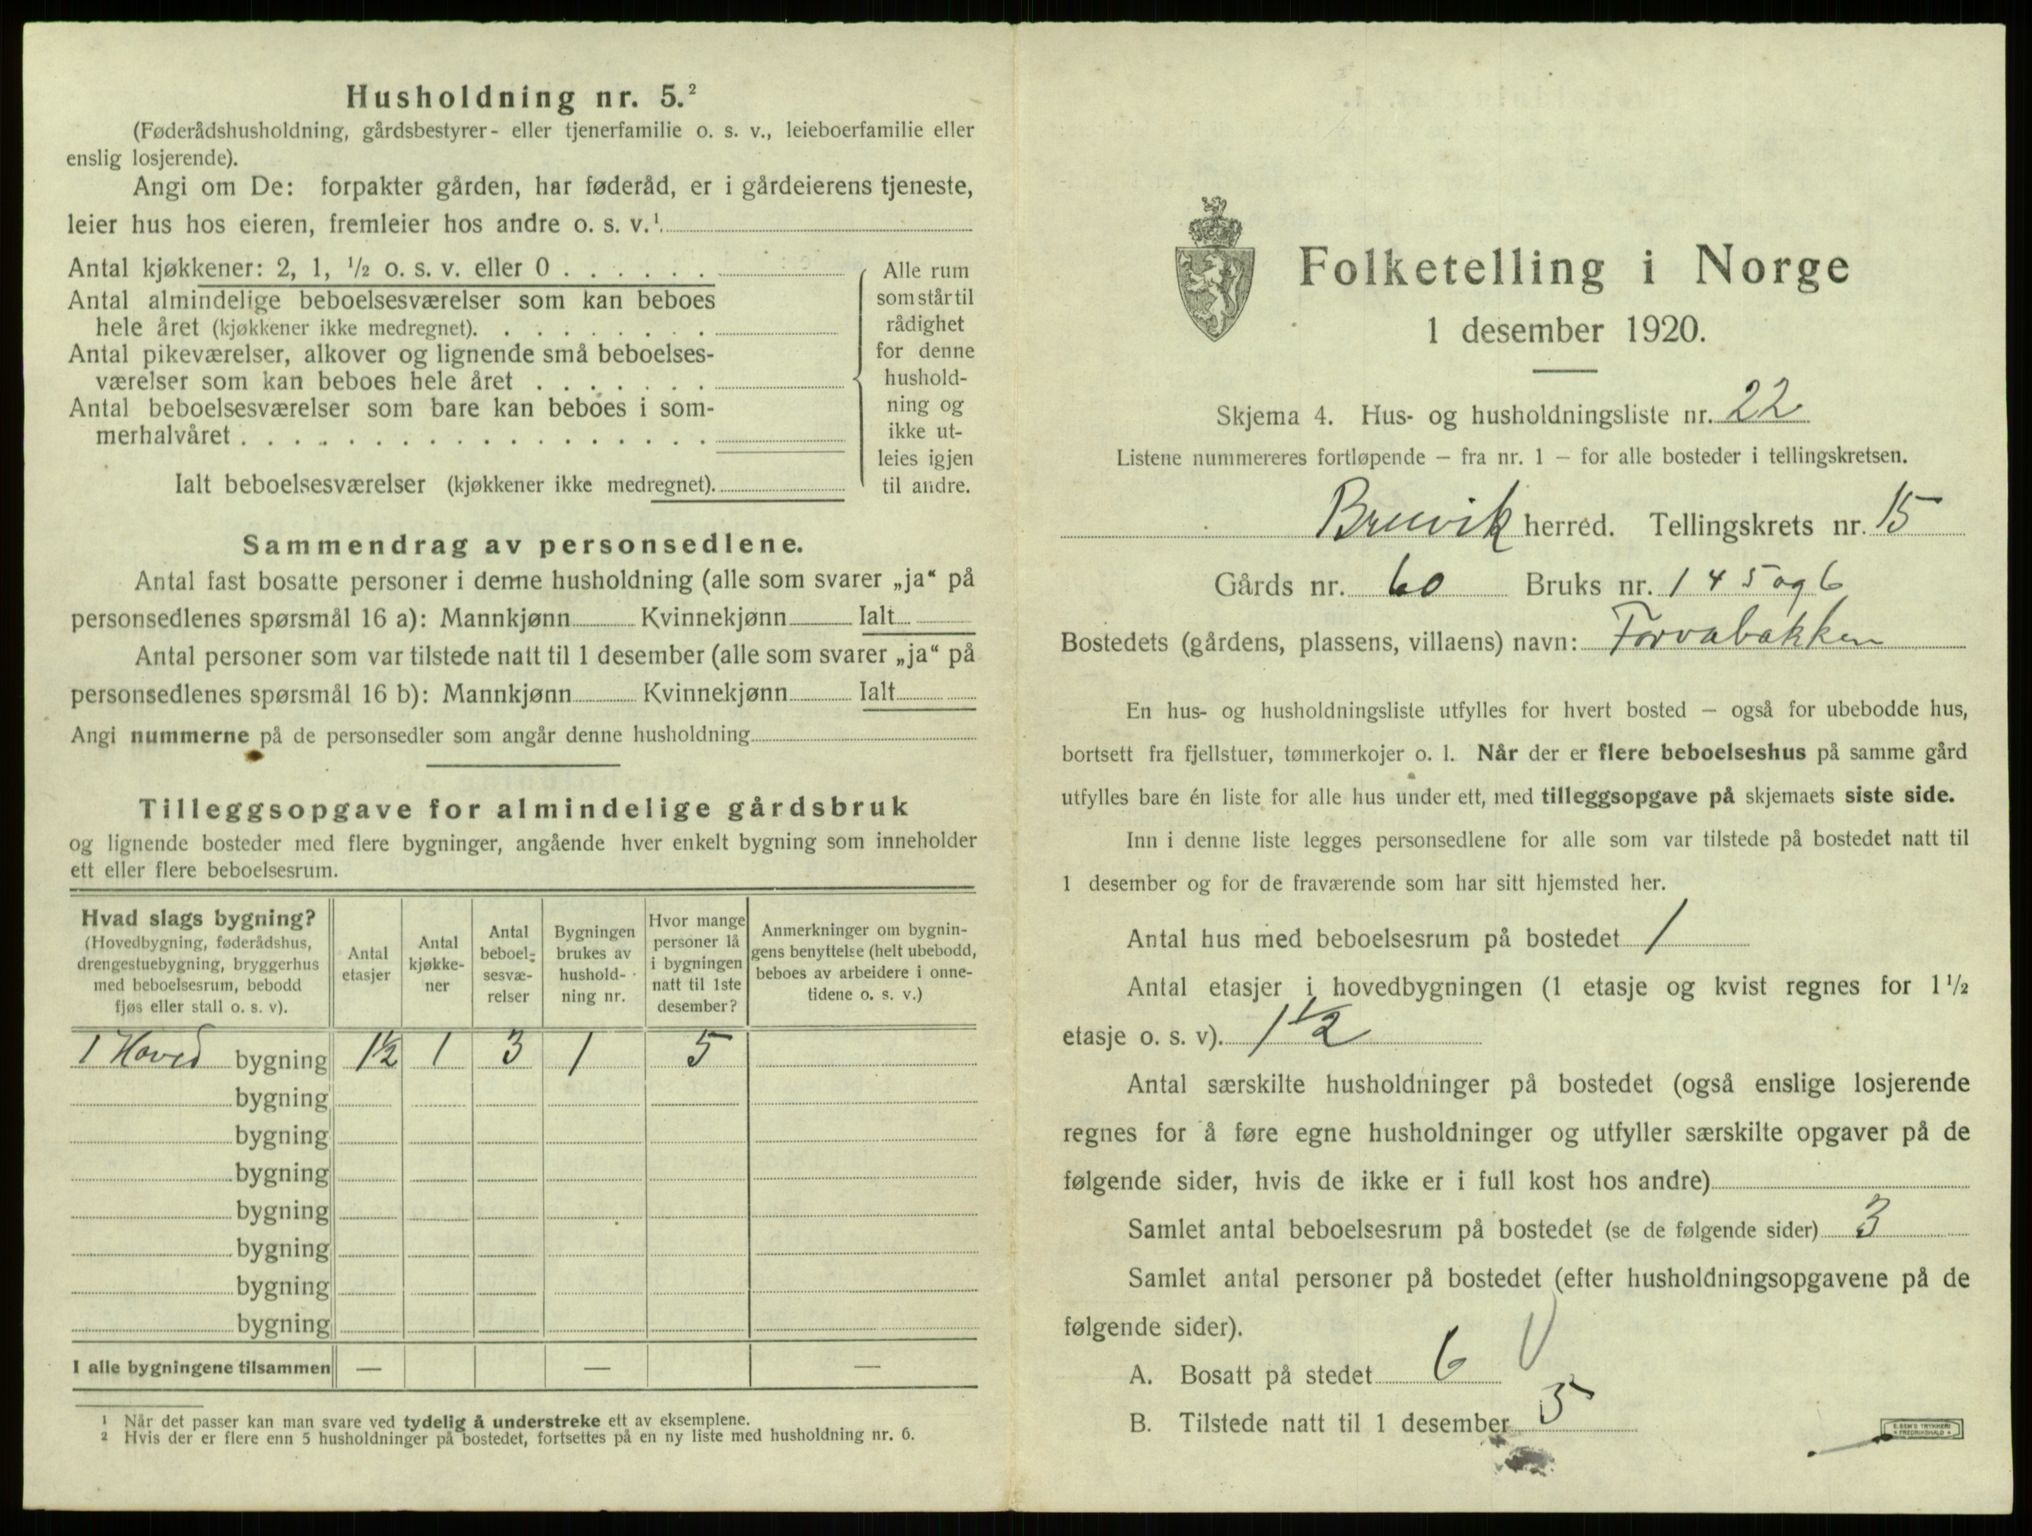 Husholdning nr. 5.²
(Føderådshusholdning, gårdsbestyrer- eller tjenerfamilie o. s. v., leieboerfamilie eller
enslig losjerende).
Angi om De: forpakter gården, har føderåd, er i gårdeierens tjeneste,
leier hus hos eieren, fremleier hos andre o. s. v.¹
Antal kjøkkener: 2, 1, ½ o. s. v. eller 0 . . . . . .
Antal almindelige beboelsesværelser som kan beboes
hele året (kjøkkener ikke medregnet). . . . . . . . .
Antal pikeværelser, alkover og lignende små beboelses-
værelser som kan beboes hele året . . . . . . .
Antal beboelsesværelser som bare kan beboes i som-
merhalvåret . . . . . . . . . . . . . . . . . .
Ialt beboelsesværelser (kjøkkener ikke medregnet).
Alle rum
som står til
rådighet
for denne
hushold-
ning og
ikke ut-
leies igjen
til andre.
Sammendrag av personsedlene.
Antal fast bosatte personer i denne husholdning (alle som svarer „ja“ på
personsedlenes spørsmål 16 a): Mannkjønn Kvinnekjønn Ialt
Antal personer som var tilstede natt til 1 desember (alle som svarer „ja“ på
personsedlenes spørsmål 16 b): Mannkjønn Kvinnekjønn Ialt
Angi nummerne på de personsedler som angår denne husholdning
Tilleggsopgave for almindelige gårdsbruk
og lignende bosteder med flere bygninger, angående hver enkelt bygning som inneholder
ett eller flere beboelsesrum.
Hvad slags bygning?
(Hovedbygning, føderådshus,
drengestuebygning, bryggerhus
med beboelsesrum, bebodd
fjøs eller stall o. s. v).
Antal
etasjer
Antal
kjøkke-
ner
Antal
beboel-
sesvæ-
relser
Bygningen
brukes av
hushold-
ning nr.
Hvor mange
personer lå
i bygningen
natt til 1ste
desember?
Anmerkninger om bygnin-
gens benyttelse (helt ubebodd,
beboes av arbeidere i onne-
tidene o. s. v.)
1 Hoved bygning 1½ 1 3 1 5
bygning
bygning
bygning
bygning
bygning
bygning
bygning
I alle bygningene tilsammen — — —
¹ Når det passer kan man svare ved tydelig å understreke ett av eksemplene.
² Hvis der er flere enn 5 husholdninger på bostedet, fortsettes på en ny liste med husholdning nr. 6.
Folketelling i Norge
1 desember 1920.
Skjema 4. Hus- og husholdningsliste nr. 22
Listene nummereres fortløpende – fra nr. 1 – for alle bosteder i tellingskretsen.
Bruvik herred. Tellingskrets nr. 15
Gårds nr. 60 Bruks nr. 1 4 5 og 6
Bostedets (gårdens, plassens, villaens) navn: Forvabakken
En hus- og husholdningsliste utfylles for hvert bosted – også for ubebodde hus,
bortsett fra fjellstuer, tømmerkojer o. l. Når der er flere beboelseshus på samme gård
utfylles bare én liste for alle hus under ett, med tilleggsopgave på skjemaets siste side.
Inn i denne liste legges personsedlene for alle som var tilstede på bostedet natt til
1 desember og for de fraværende som har sitt hjemsted her.
Antal hus med beboelsesrum på bostedet 1
Antal etasjer i hovedbygningen (1 etasje og kvist regnes for 1½
etasje o. s. v). 1½
Antal særskilte husholdninger på bostedet (også enslige losjerende
regnes for å føre egne husholdninger og utfyller særskilte opgaver på de
følgende sider, hvis de ikke er i full kost hos andre)
Samlet antal beboelsesrum på bostedet (se de følgende sider) 3
Samlet antal personer på bostedet (efter husholdningsopgavene på de
følgende sider).
A. Bosatt på stedet 6
B. Tilstede natt til 1 desember 5